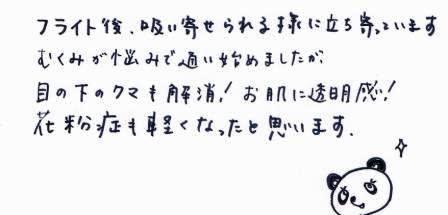 フライト後、吸い寄せられる様に立ち寄っています
むくみが悩みで通い始めましたが
目の下のクマも解消!お肌に透明感!
花粉症も軽くなったと思います.